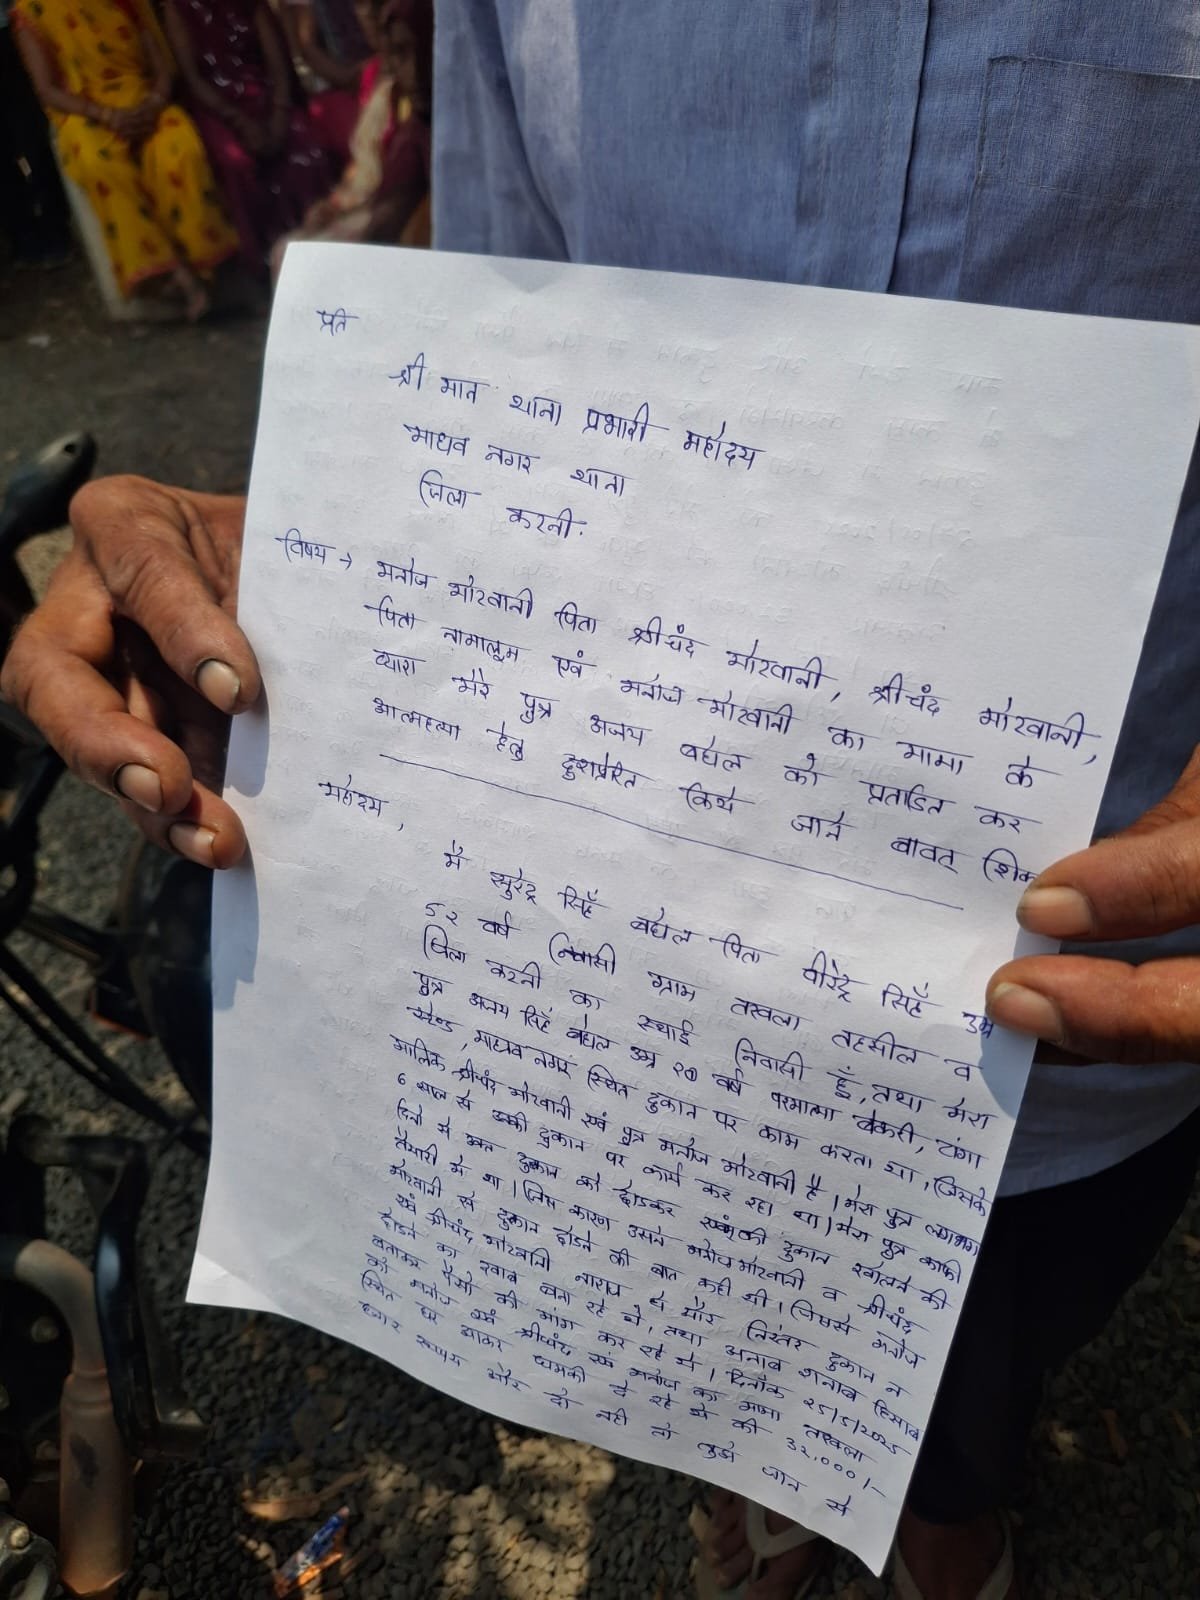 प्रति
श्री मान थाना प्रभारी महोदय
माधव नगर थाना
जिला कटनी.
विषय → मनोज मोटवानी पिता श्रीचंद मोटवानी, श्रीचंद मोटवानी,
पिता नामालूम एवं मनोज मोटवानी का मामा के
व्दारा मेरे पुत्र अजय बघेल को प्रताडित कर
आत्महत्या हेतु दुशप्रेरित किये जाने बावत् शिक
महोदय,
मै सुरेन्द्र सिहँ बघेल पिता वीरेन्द्र सिहँ उम्र
५२ वर्ष निवासी ग्राम तखला तहसील व
जिला कटनी का स्थाई निवासी हूँ, तथा मेरा
पुत्र अजय सिहँ बघेल उम्र २७ वर्ष परमात्मा बेकरी, टांगा
स्टेण्ड, माधव नगर स्थित दुकान पर काम करता था, जिसके
मालिक श्रीचंद मोटवानी एवं पुत्र मनोज मोटवानी है। मेरा पुत्र लगभग
6 साल से उनकी दुकान पर कार्य कर रहा था। मेरा पुत्र काफी
दिनो से उक्त दुकान को छोडकर स्वंम की दुकान खोलने की
तैयारी मे था। जिस कारण उसने मनोज मोटवानी व श्रीचंद
मोटवानी से दुकान छोडने की बात कही थी। जिससे मनोज
एवं श्रीचंद मोटवानी नाराज थे और निरंतर दुकान न
छोडने का दबाव बना रहे थे, तथा अनाब शनाब हिसाब
बताकर पैसो की मांग कर रहे थे। दिनाँक २5/5/2025
को मनोज एवं श्रीचंद एवं मनोज का मामा तखला
स्थित घर आकर धमकी दे रहे थे की 32,000/-
हजार रूपये और दो नही तो तुझे जान से